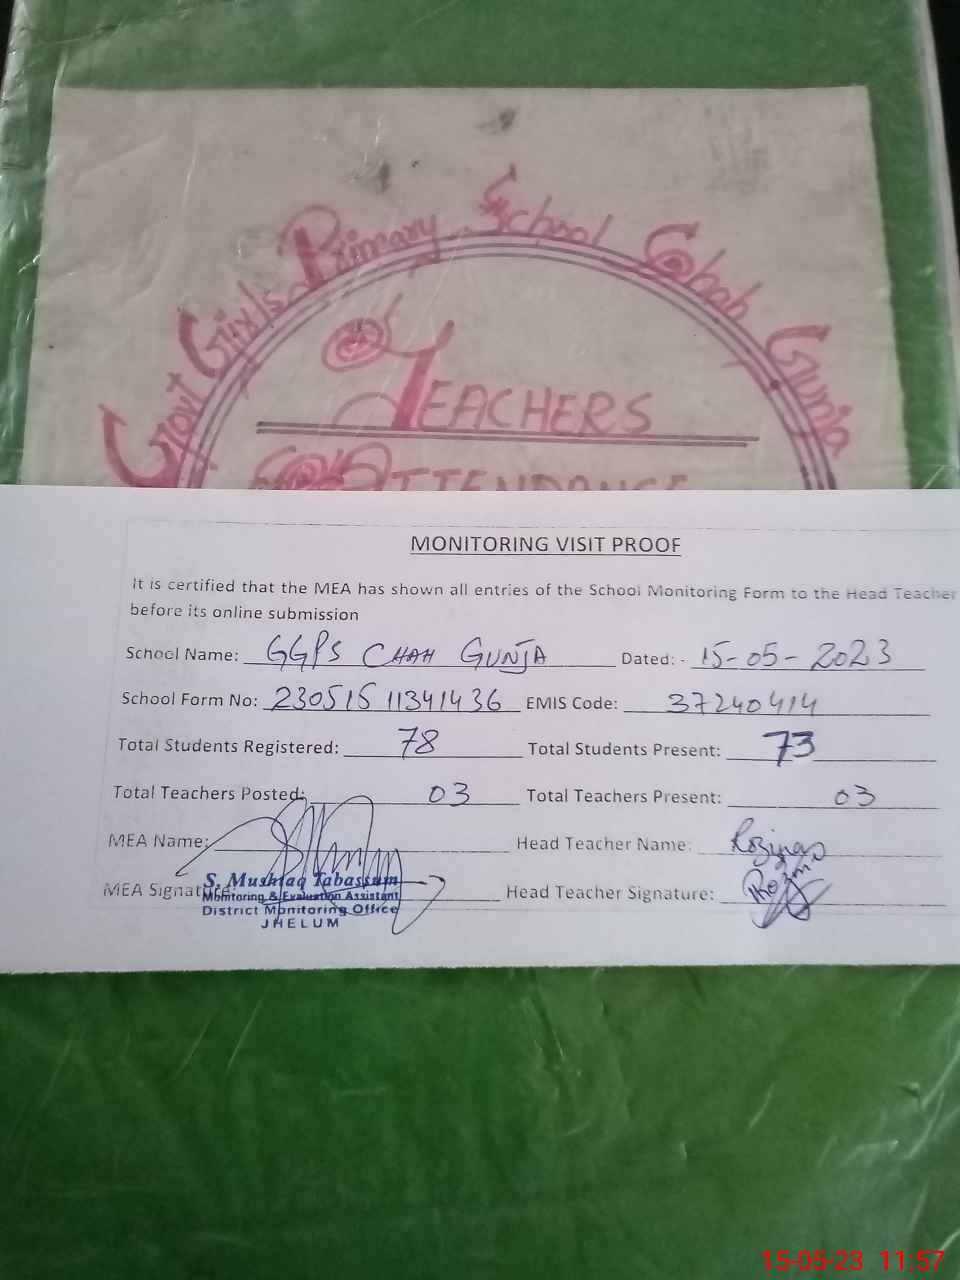 Govt Girls Primary School Chah Gunja
TEACHERS
ATTENDANCE
MONITORING VISIT PROOF
It is certified that the MEA has shown all entries of the School Monitoring Form to the Head Teacher
before its online submission
School Name: GGPS CHAH GUNJA Dated: - 15-05-2023
School Form No: 23051511341436 EMIS Code: 37240414
Total Students Registered: 78 Total Students Present: 73
Total Teachers Posted: 03 Total Teachers Present: 03
MEA Name: Head Teacher Name:
MEA Signature: Head Teacher Signature:
S. Mushtaq Tabassum
Monitoring & Evaluation Assistant
District Monitoring Office
JHELUM
15-05-23 11:57